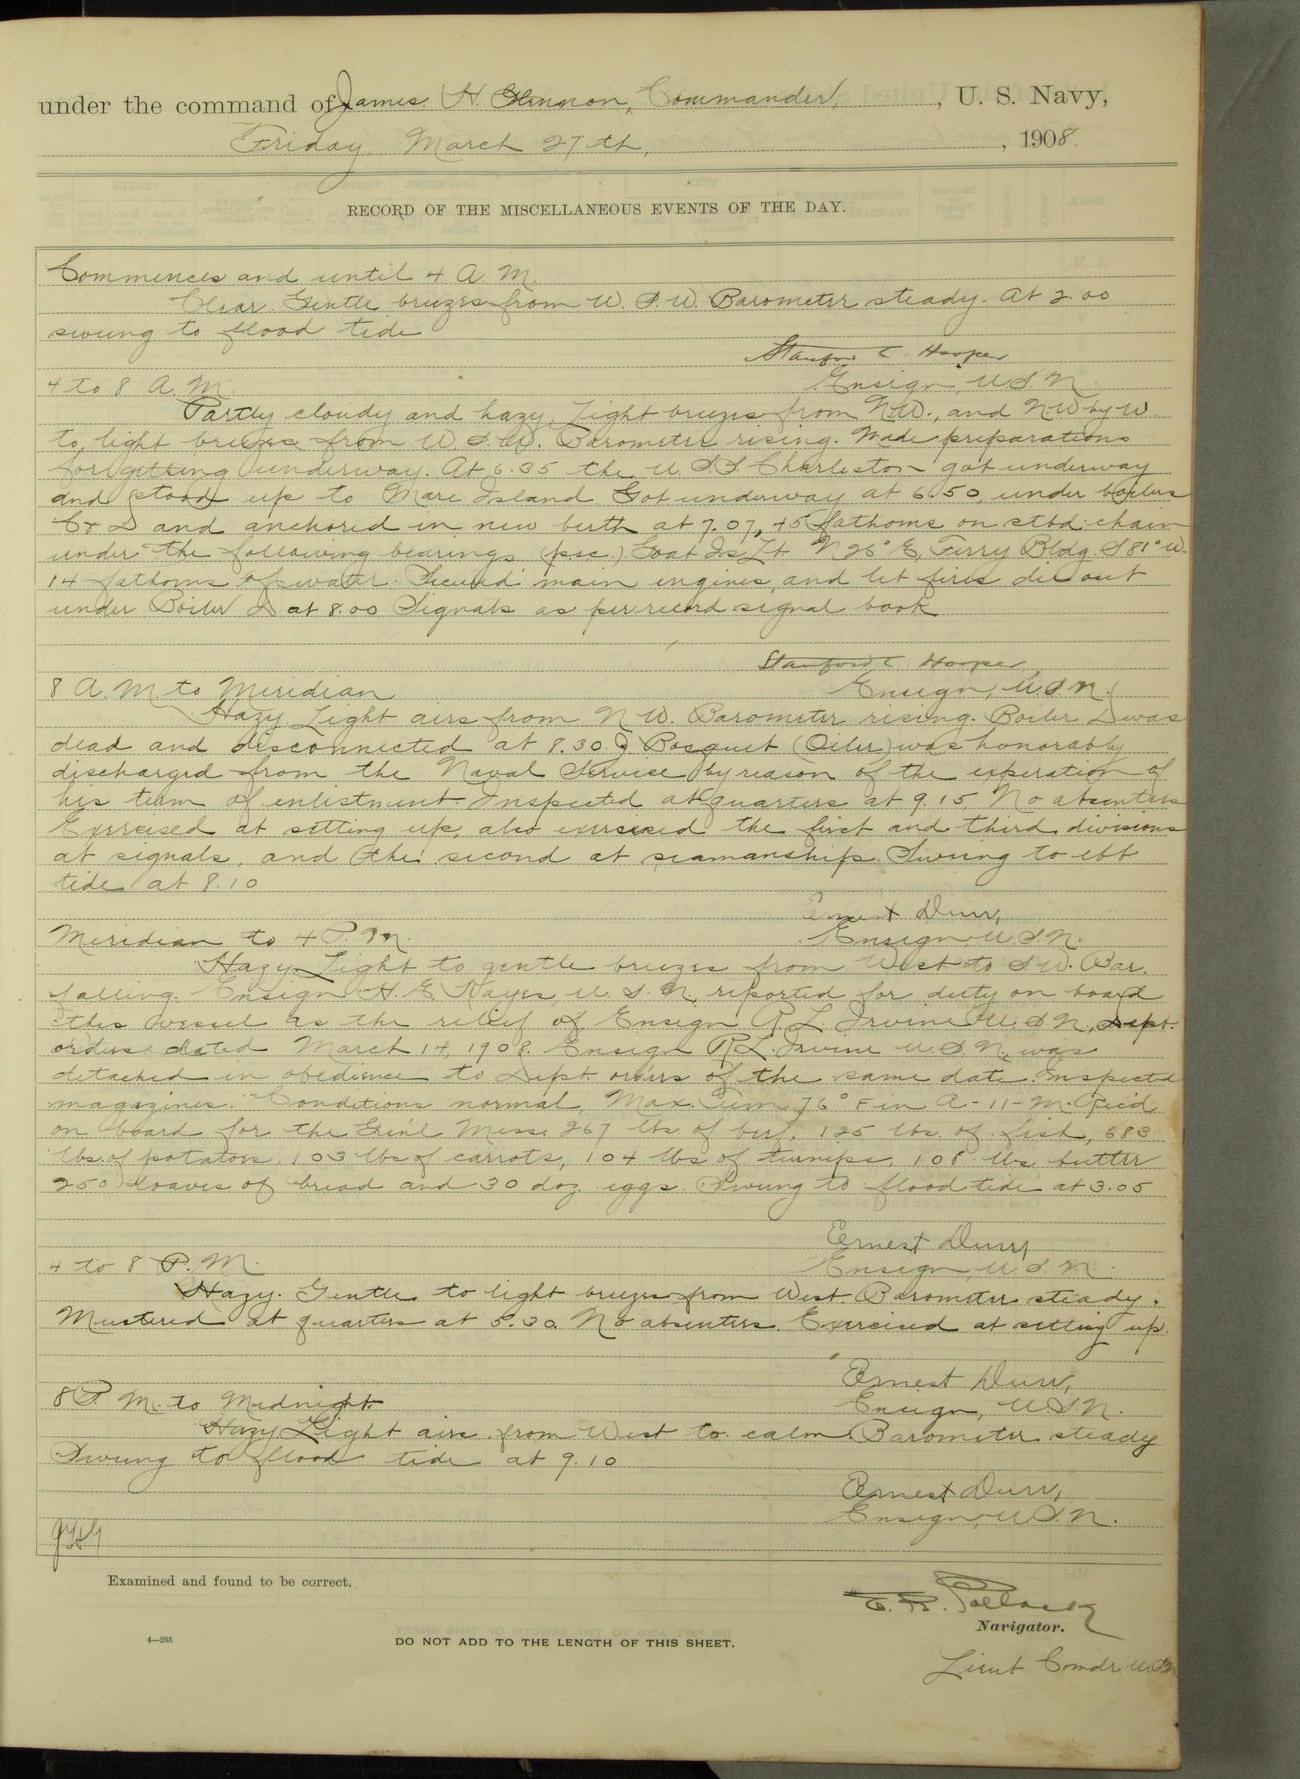 under the command of James H. Glennon, Commander, , U. S. Navy,
Friday, March 27th, , 1908
RECORD OF THE MISCELLANEOUS EVENTS OF THE DAY.
Commences and until 4 A. M.
Clear. Gentle breezes from W. S. W. Barometer steady. At 2.00
swung to flood tide
Stanford C Hooper
4 to 8 A. M. Ensign, U S N.
Partly cloudy and hazy. Light breezes from N.W., and N.W by W
to light breezes from W. S. W. Barometer rising. Made preparations
for getting underway. At 6.35 the U. S. S. Charleston got underway
and stood up to Mare Island. Got underway at 6.50, under boilers
C & D and anchored in new berth at 7.07, 45 fathoms on stbd. chain
under the following bearings (psc.) Goat Is. Lt. N 26° E, Ferry Bldg. S 81° W.
14 fathoms of water. Secured main engines, and let fires die out
under Boiler D at 8.00 Signals as per record signal book
Stanford C Hooper,
8 A. M. to Meridian Ensign, U. S. N.
Hazy. Light airs from N. W. Barometer rising. Boiler D was
dead and disconnected at 8.30. J Bosquet (Oiler) was honorably
discharged from the Naval Service by reason of the experation of
his term of enlistment. Inspected at quarters at 9.15, No absentees
Exercised at setting up, also exersised the first and third divisions
at signals, and the second at seamanship. Swung to ebb
tide at 8.10
Ernest Durr,
Meridian to 4 P. M. Ensign, U S N.
Hazy. Light to gentle breezes from West to S. W. Bar.
falling. Ensign H. E. Kayes, U. S. N, reported for duty on board
this vessel as the relief of Ensign R. L. Irvine U. S. N., Dept.
orders dated March 14, 1908. Ensign R. L. Irvine U. S. N., was
detached in obedience to Dept. orders of the same date. Inspected
magazines. Conditions normal, Max. Tem 76° F in A-11-M. Rec'd
on board for the Gen'l Mess. 267 lbs. of beef, 125 lbs. of fish, 683
lbs. of potatoes, 103 lbs of carrots, 104 lbs of turnips, 108 lbs butter
250 loaves of bread and 30 doz. eggs. Swung to flood tide at 3.05
Ernest Durr,
4 to 8 P. M. Ensign, U. S. N.
Hazy. Gentle to light breezes from West. Barometer steady.
Mustered at quarters at 5.30. No absentees. Exercised at setting up.
Ernest Durr,
8 P. M. to Midnight. Ensign, U S N.
Hazy. Light airs from West to calm. Barometer steady
Swung to flood tide at 9.10
Ernest Durr,
Ensign, U S N.
Examined and found to be correct.
E. R. Pollock
Navigator.
4—265
DO NOT ADD TO THE LENGTH OF THIS SHEET.
Lieut Comdr. U. S. N